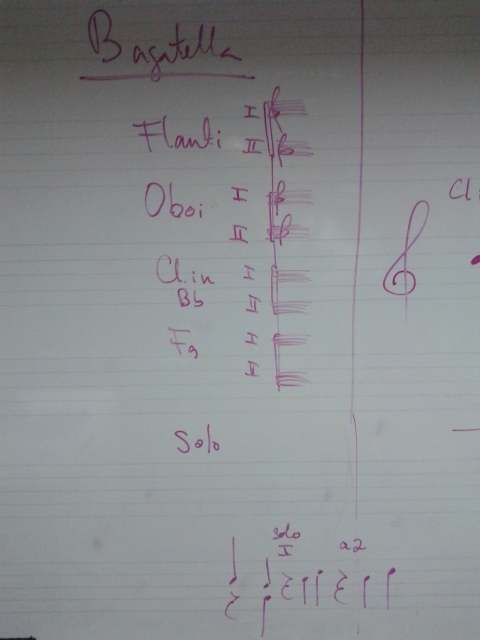 Bagatella
I
Flauti II
Oboi I
II
Cl. in I
Bb II
Fg I
I
Solo
solo
I a2
Cl